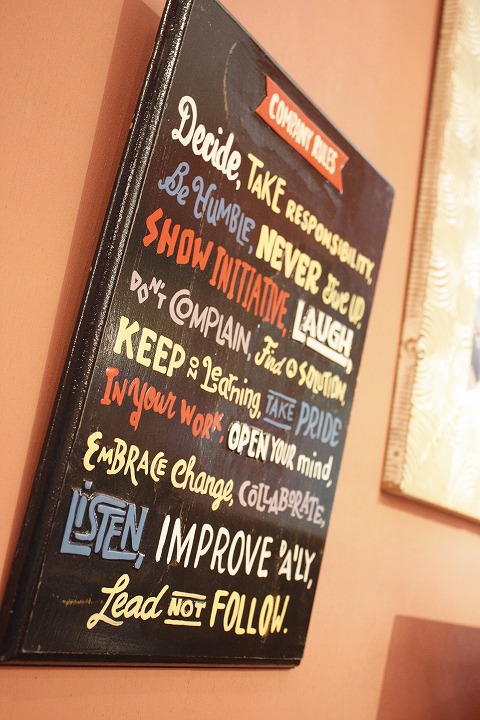 COMPANY RULES
Decide, TAKE RESPONSIBILITY,
Be HUMBLE, NEVER Give UP,
SHOW INITIATIVE, LAUGH,
DON'T COMPLAIN, Find A SOLUTION,
KEEP ON Learning, TAKE PRIDE
IN YOUR WORK, OPEN YOUR mind,
EMBRACE Change, COLLABORATE,
LISTEN, IMPROVE
Lead NOT FOLLOW.